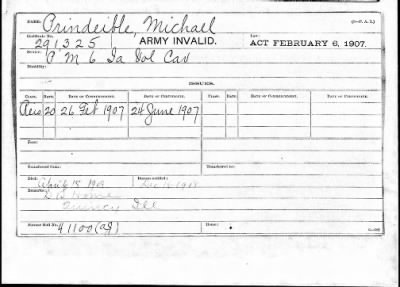 NAME: Prindeible, Michael (3—P. A. L.)
Certificate No. 291325 ARMY INVALID. Law: ACT FEBRUARY 6, 1907.
Service: P M 6 Ia Vol Cav
Monthly:
ISSUES.
CLASS. RATE. DATE OF COMMENCEMENT. DATE OF CERTIFICATE. CLASS. RATE. DATE OF COMMENCEMENT. DATE OF CERTIFICATE.
Reis 20 26 Feb 1907 24 June 1907
Fees:
Transferred from: Transferred to:
Died: April 15 1913
Remarks: Home
Quincy Ill
Former Roll No. 41100 Home: